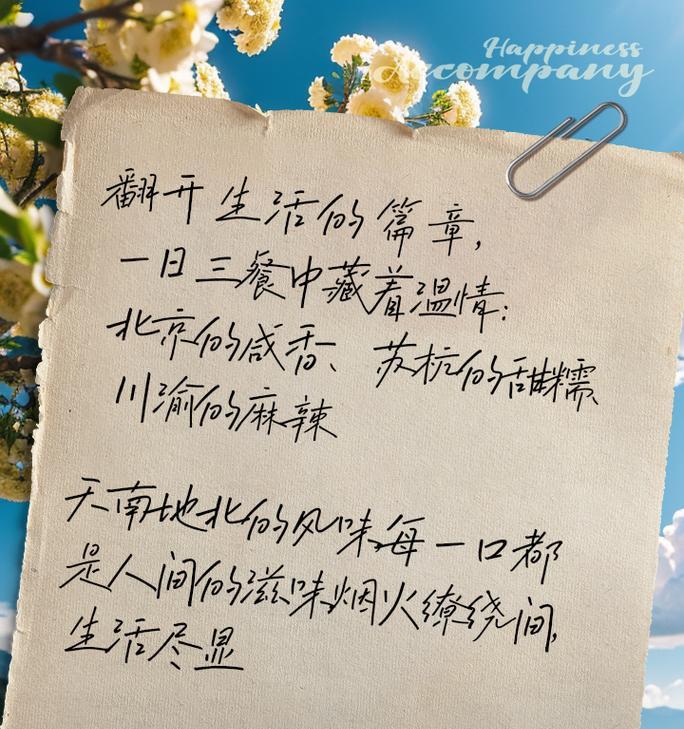 Happiness
Accompany
翻开生活的篇章,
一日三餐中藏着温情:
北京的咸香、苏杭的甜糯
川渝的麻辣
天南地北的风味每一口都
是人间的滋味烟火缭绕间,
生活尽显